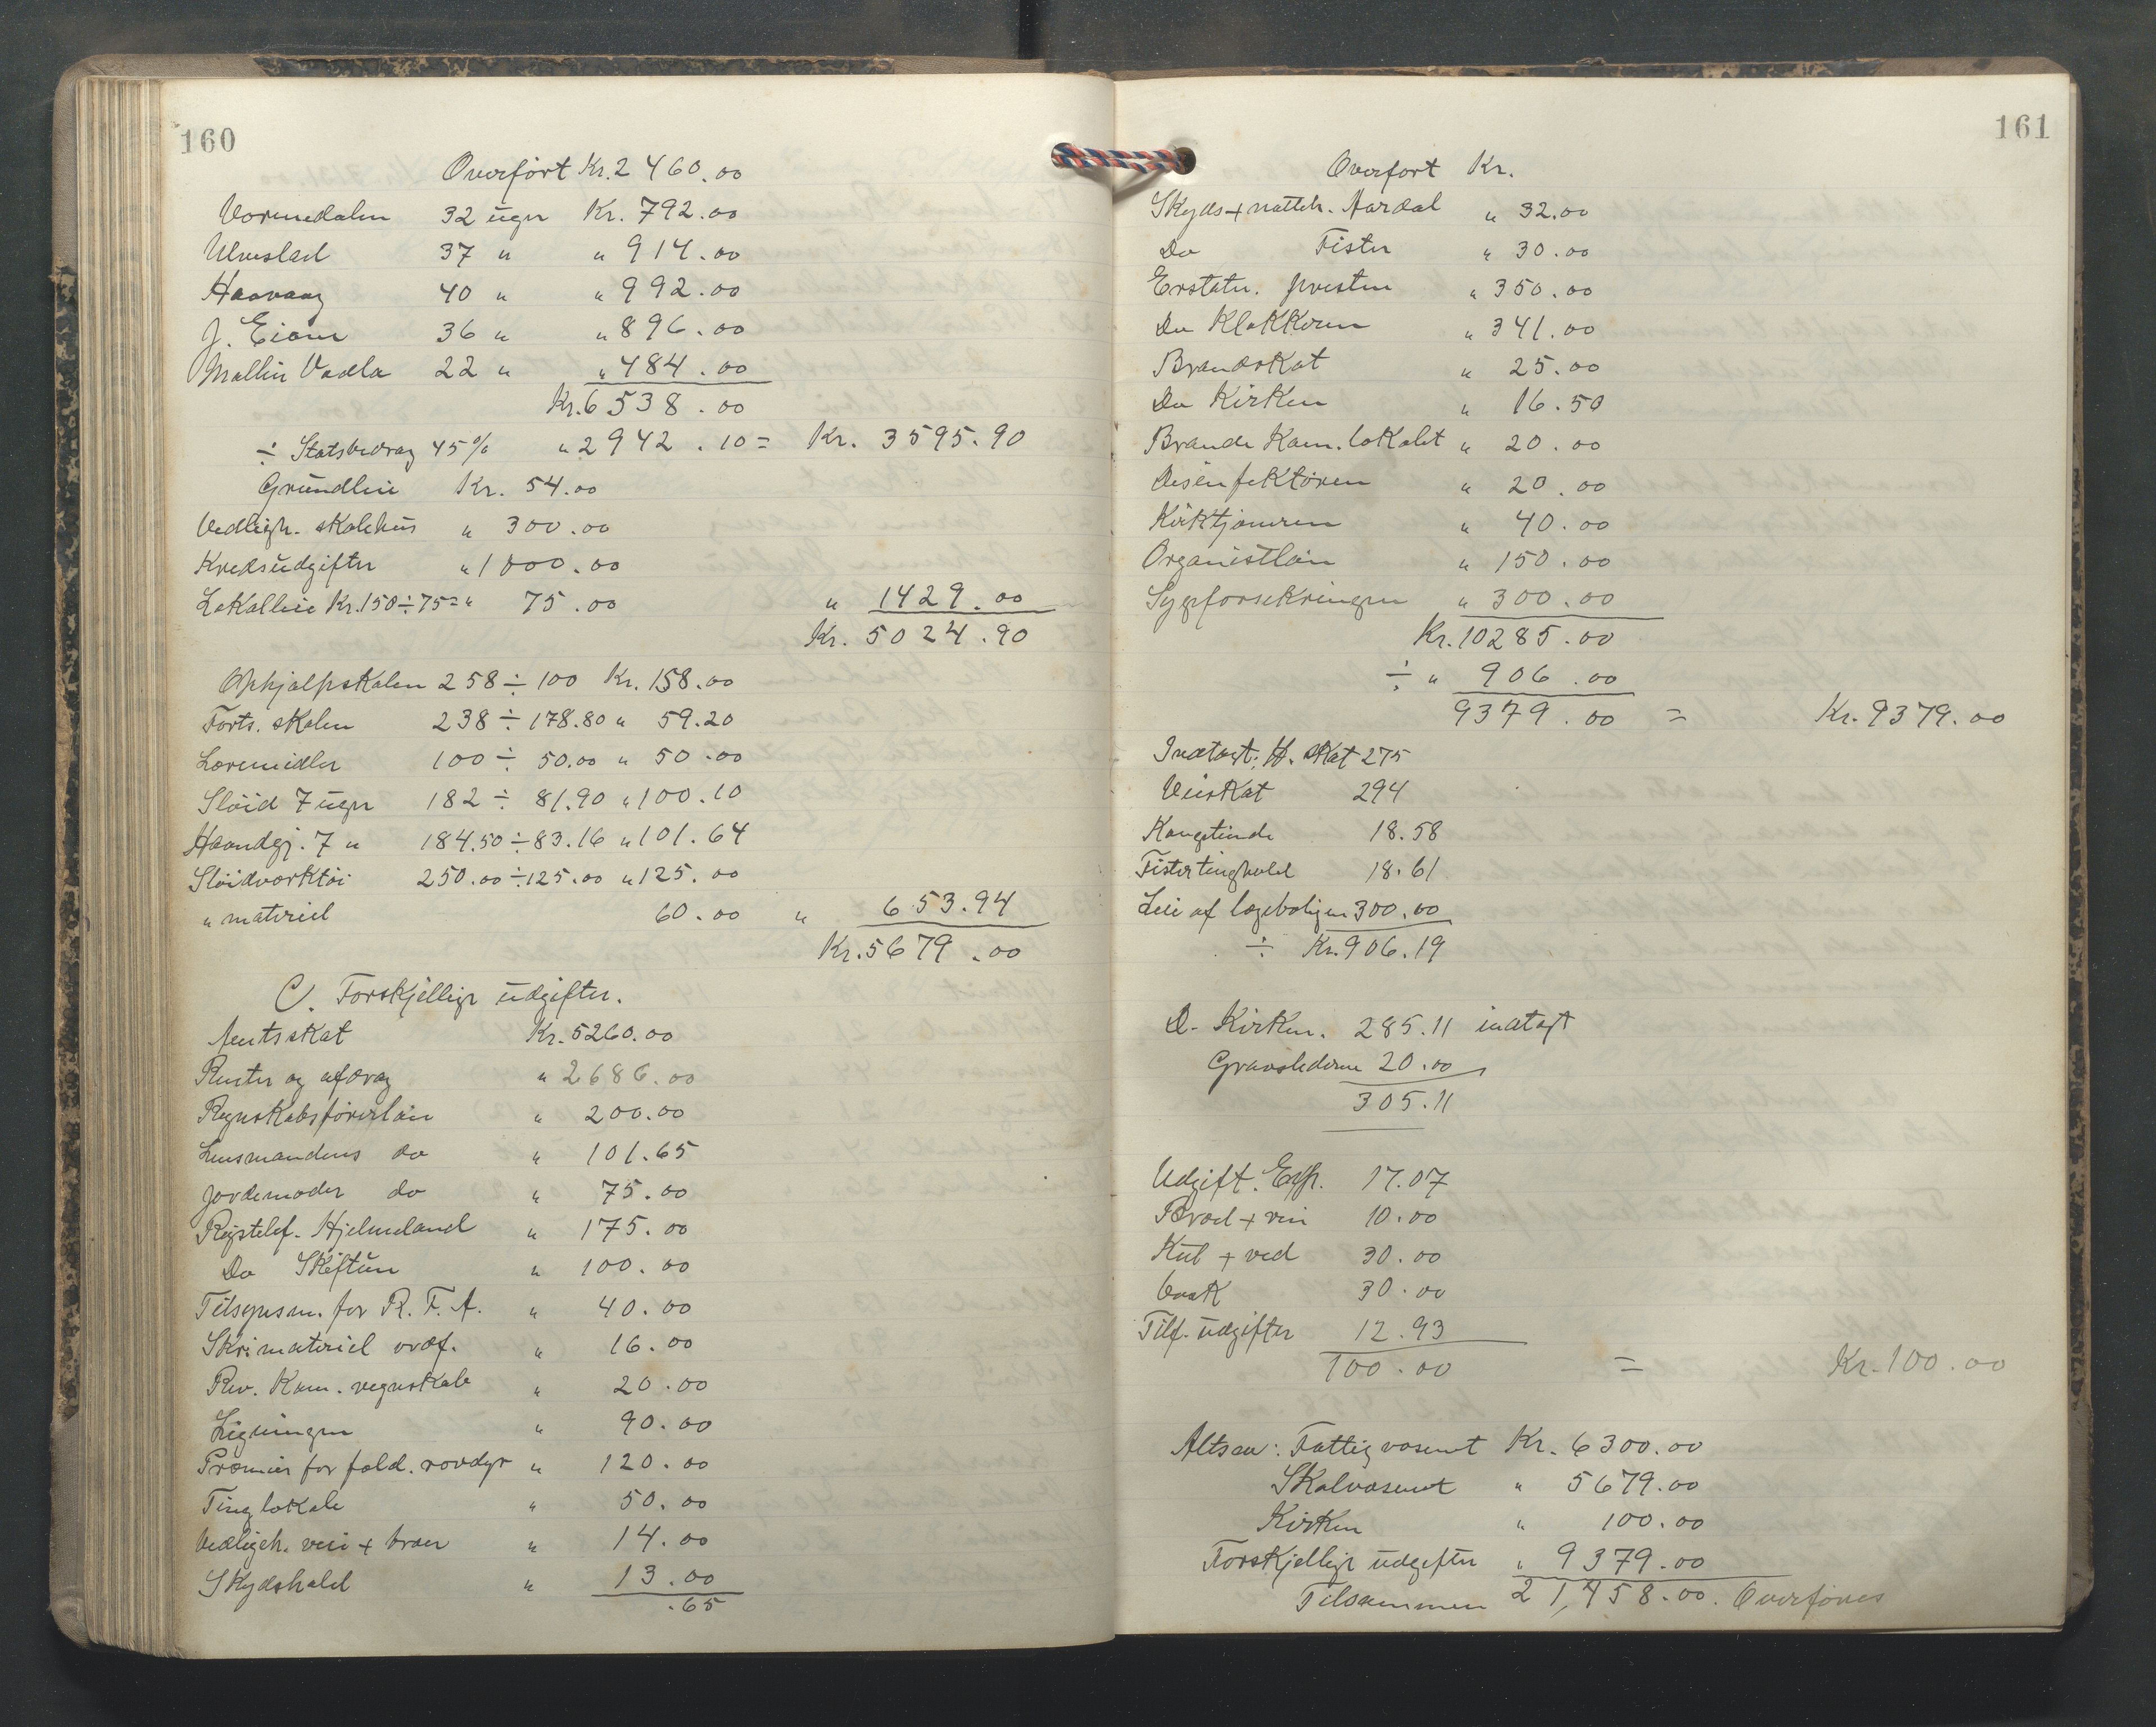 160
Overført Kr. 2460.00
Vormedalen 32 uger Kr. 792.00
Ulvuslad 37 " " 914.00
Haavaag 40 " " 992.00
J. Eiane 36 " " 896.00
Mallin Vadla 22 " " 484.00
Kr. 6538.00
÷ Statsbidrag 45% " 2942.10 = Kr. 3595.90
Grundleie Kr. 54.00
Vedligh. skolehus " 300.00
Kredsudgifter " 1000.00
Lokalleie Kr. 150 ÷ 75 = " 75.00 " 1429.00
Kr. 5024.90
Ophjælpskolen 258 ÷ 100 Kr. 158.00
Forts. skolen 238 ÷ 178.80 " 59.20
Læremidler 100 ÷ 50.00 " 50.00
Sløid 7 uger 182 ÷ 81.90 " 100.10
Haandgj. 7 " 184.50 ÷ 83.16 " 101.64
Sløidværktøi 250.00 ÷ 125.00 " 125.00
" materiel 60.00 " 653.94
Kr. 5679.00
C. Forskjellige udgifter.
Amtsskat Kr. 5260.00
Renter og afdrag " 2686.00
Regnskabsførerløn " 200.00
Lensmandens do " 101.65
Jordemoder do " 75.00
Rigstelef. Hjelmeland " 175.00
Do Skiftun " 100.00
Tilsynsm. for R. F. A. " 40.00
Skr. materiel ordf. " 16.00
Rev. Kom. regnskab " 20.00
Ligningen " 90.00
Præmier for fæld. rovdyr " 120.00
Tinglokale " 50.00
Vedligeh. vei + broer " 14.00
Skydshold " 13.00
.65
161
Overført Kr.
Skyds + natteh. Aardal " 32.00
Do Fister " 30.00
Erstatn. presten " 350.00
Do Klokkeren " 341.00
Brandskat " 25.00
Do Kirken " 16.50
Brande Kom. lokalet " 20.00
Desenfektøren " 20.00
Kirktjeneren " 40.00
Organistløn " 150.00
Sygeforsikringen " 300.00
Kr. 10285.00
÷ " 906.00
9379.00 = Kr. 9379.00
Indtægt: H. skat 275
Veiskat 294
Kongetiende 18.58
Fister tinghold 18.61
Leie af lægeboligen 300.00
÷ Kr. 906.19
D. Kirken. 285.11 indtægt
Gravstederne 20.00
305.11
Udgift. Exp. 17.07
Brød + vin 10.00
Kul + ved 30.00
Vask 30.00
Tilf. udgifter 12.93
100.00 = Kr. 100.00
Altsaa: Fattigvæsenet Kr. 6300.00
Skolvæsenet " 5679.00
Kirken " 100.00
Forskjellige udgifter " 9379.00
Tilsammen 21,458.00. Overføres